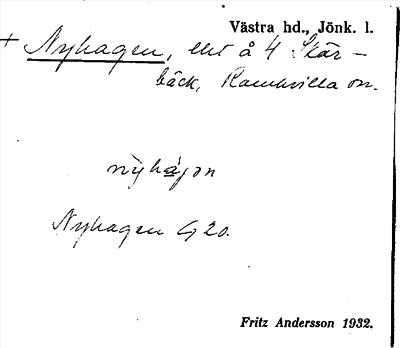 Västra hd., Jönk. l.
+ Nyhagen, lht å 4 Skär-
bäck, Ramkvilla sn.
nỳhág̣ɔn
Nyhagen G 20.
Fritz Andersson 1932.